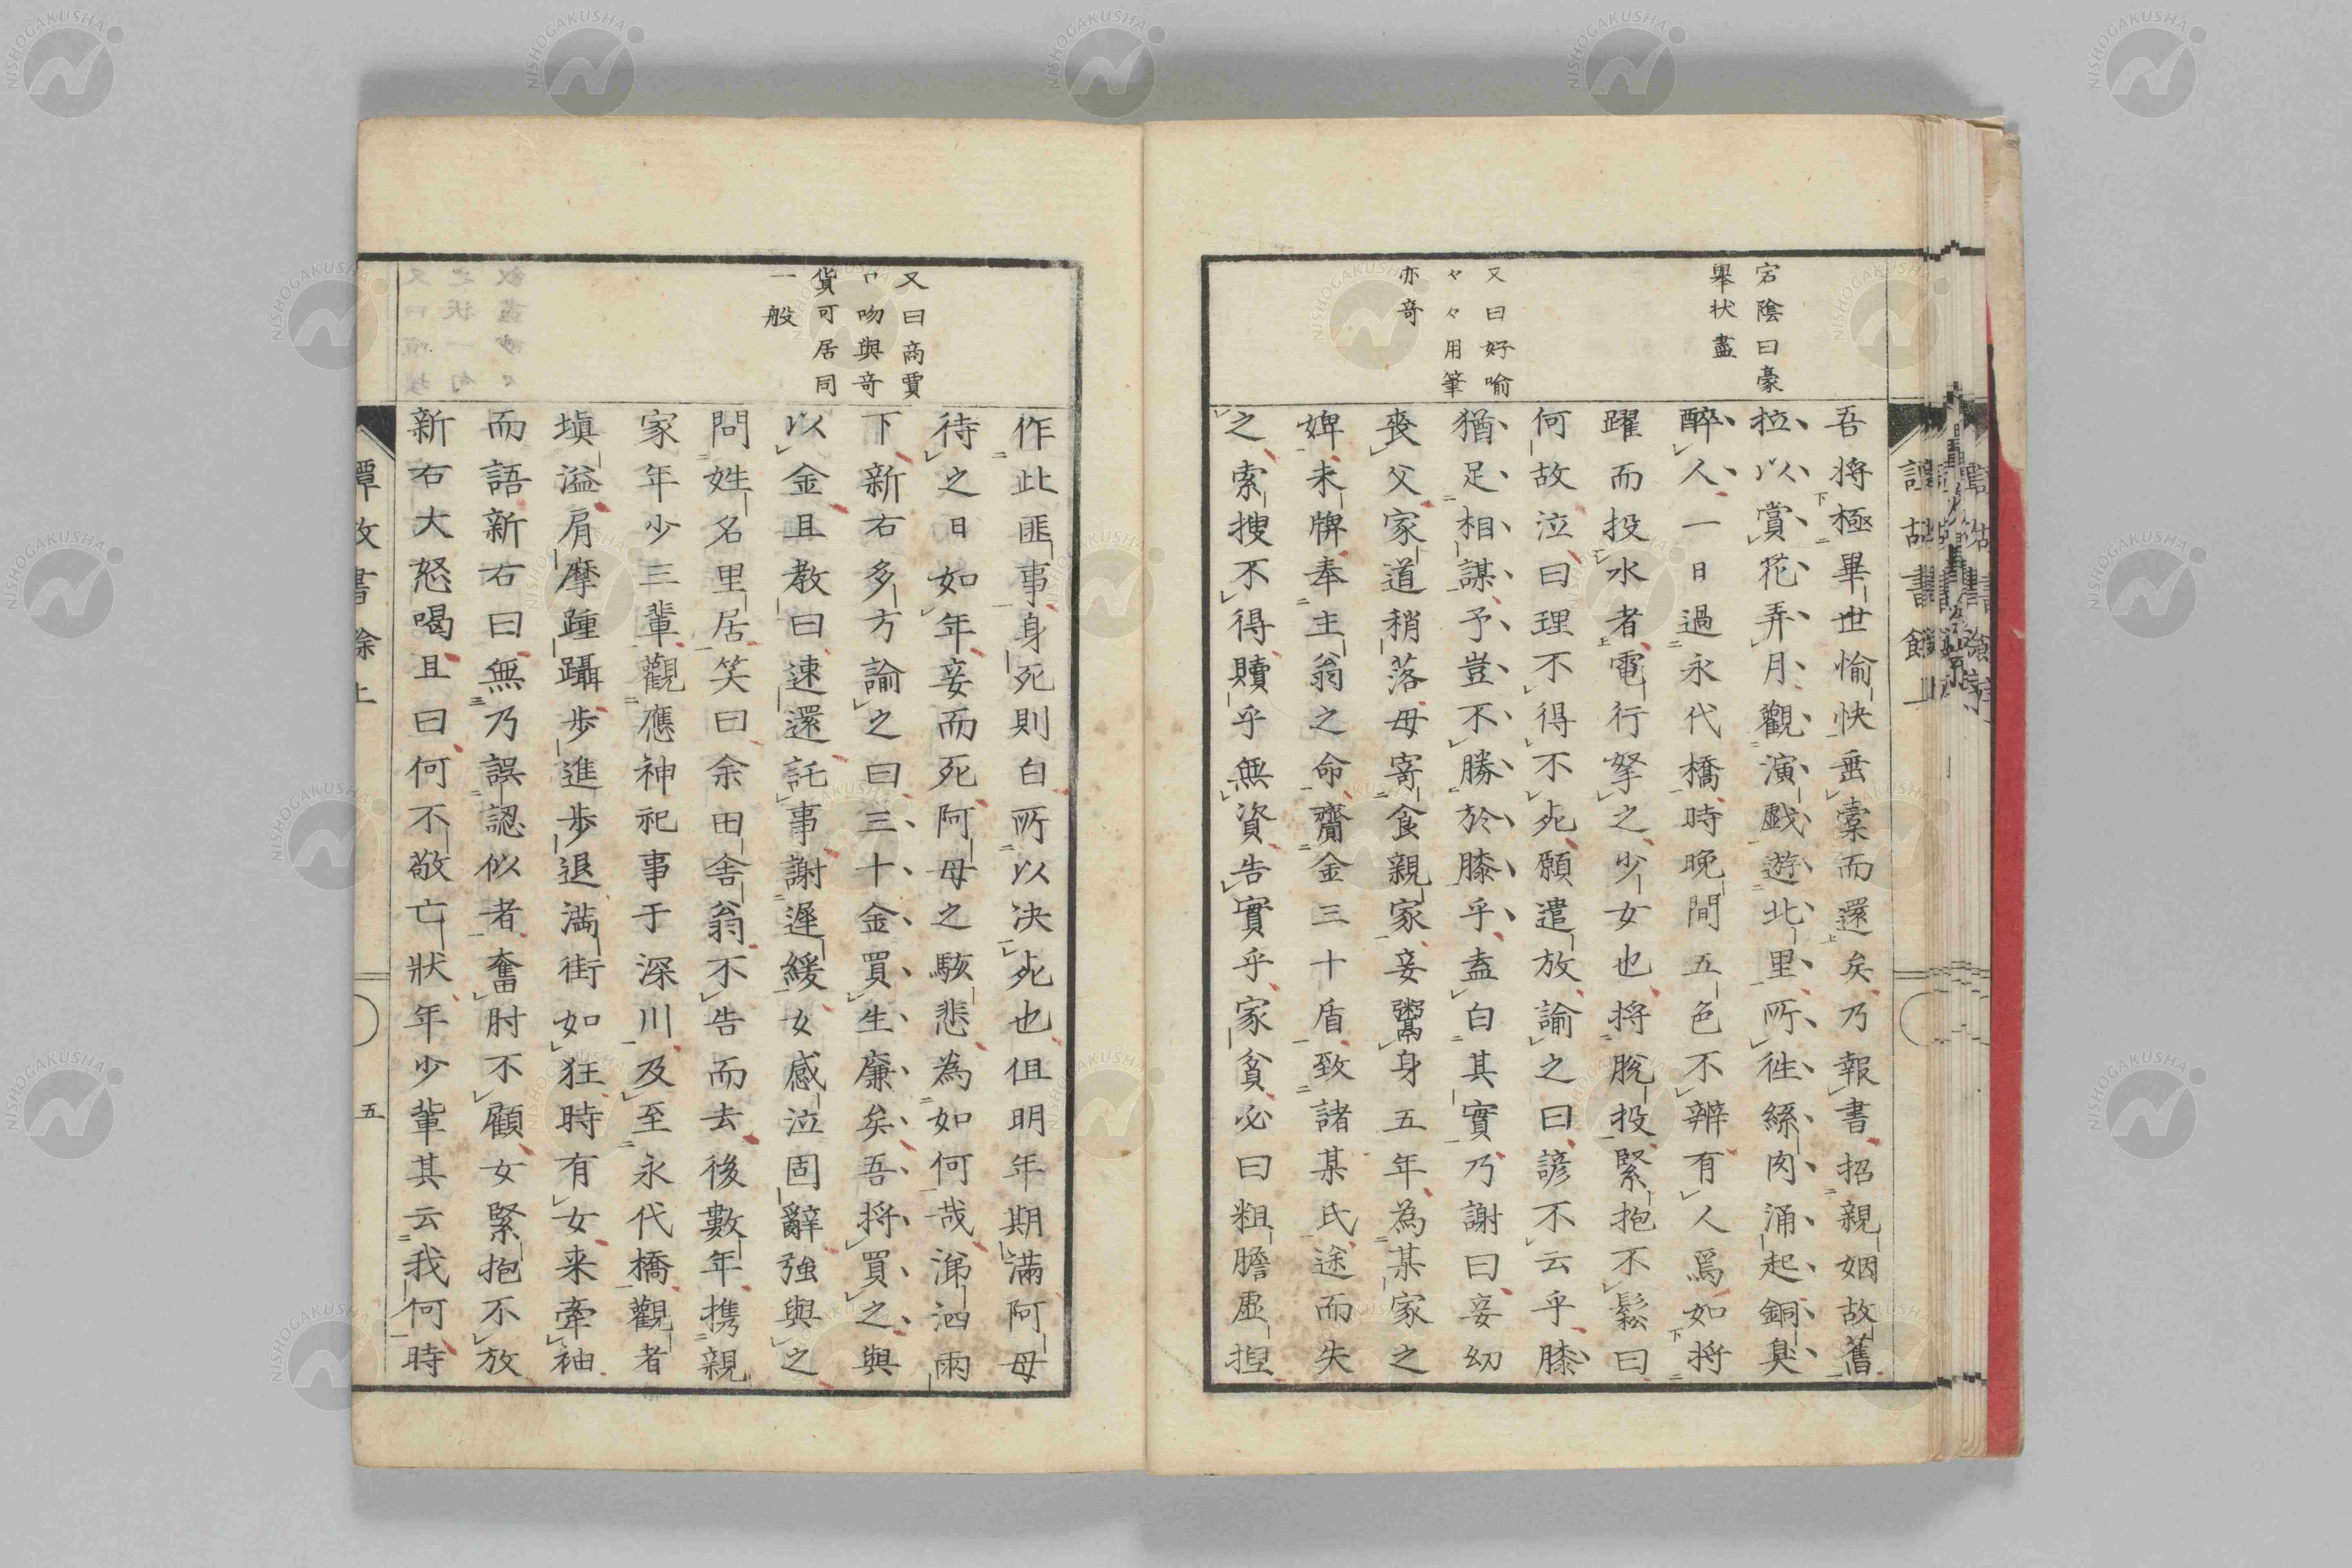 宕陰曰豪
舉状盡
又曰好喻
々々用筆
亦竒
吾將極畢世愉快垂橐而還矣乃報書招親姻故舊
拉以賞花弄月觀演戯遊北里所徃絲肉涌起銅臭
醉人一日過永代橋時晩間五色不辨有人爲如將
躍而投水者電行拏之少女也將脫投緊抱不鬆曰
何故泣曰理不得不死願遣放諭之曰諺不云乎膝
猶足相謀予豈不勝於膝乎盍白其實乃謝曰妾幼
喪父家道稍落母寄食親家妾鬻身五年為某家之
婢未牌奉主翁之命齎金三十盾致諸某氏途而失
之索搜不得贖乎無資告實乎家貧必曰粗膽虛揑
又曰商賈
口吻與竒
貨可居同
一般
作此匪事身死則白所以决死也但明年期滿阿母
待之日如年妾而死阿母之駭悲為如何哉涕泗雨
下新右多方諭之曰三十金買生廉矣吾將買之與
以金且教曰速還託事謝遲緩女感泣固辭強與之
問姓名里居笑曰余田舎翁不告而去後數年携親
家年少三輩觀應神祀事于深川及至永代橋觀者
塡溢肩摩踵躡歩進歩退滿街如狂時有女来牽袖
而語新右曰無乃誤認似者奮肘不顧女緊抱不放
新右大怒喝且曰何不敬亡狀年少輩其云我何時
五